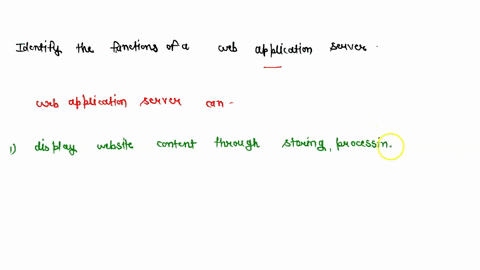 Identify the functions of a web application server.
web application server can -
1) display website content through storing, processin.